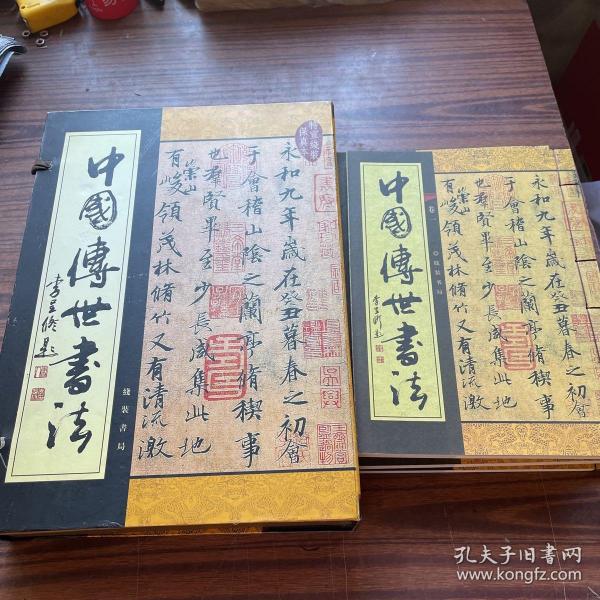 中國傳世書法
綫裝書局
永和九年歲在癸丑暮春之初會
于會稽山陰之蘭亭脩稧事
也羣賢畢至少長咸集此地
有崇山峻領茂林脩竹又有清流激
中國傳世書法
卷一
綫裝書局
永和九年歲在癸丑暮春之初會
于會稽山陰之蘭亭脩稧事
也羣賢畢至少長咸集此地
有崇山峻領茂林脩竹又有清流激
孔夫子旧书网
www.kongfz.com